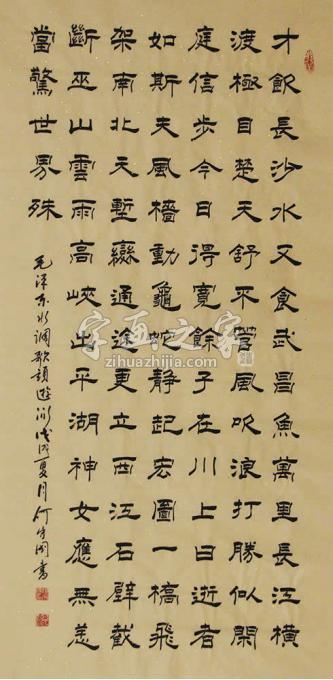 才飲長沙水又食武昌魚萬里長江橫
渡極目楚天舒不管風吹浪打勝似閑
庭信步今日得寬餘子在川上曰逝者
如斯夫風檣動龜蛇靜起宏圖一橋飛
架南北天塹變通途更立西江石壁截
斷巫山雲雨高峽出平湖神女應無恙
當驚世界殊
毛澤東水调歌頭遊泳戊戌夏月何守国書
字画之家
zihuazhijia.com